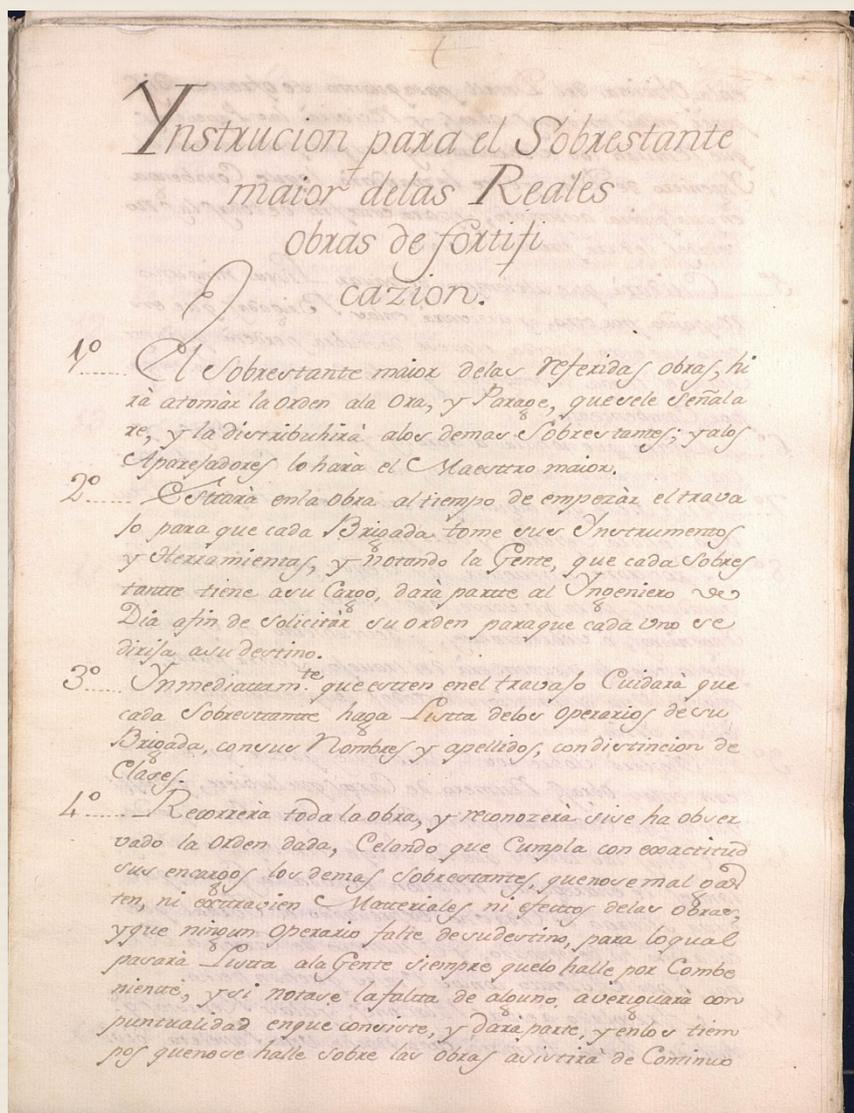 Ynstrucion para el Sobrestante
maior delas Reales
obras de fortifi
cazion.
1º El Sobrestante maior delas referidas obras, hi
rà atomàr la orden ala Ora, y Parage, quesele Señala
re, y la distribuhirà alos demas Sobrestantes; yalos
Aparejadores lo harà el Maestro maior.
2º Esttarà enla obra al tiempo de empezàr el trava
jo para que cada Brigada tome sus Ynstrumentos
y Herramientas, y notando la Gente, que cada Sobres
tantte tiene asu Cargo, darà partte al Yngeniero de
Dia afin de solicitàr su orden paraque cada uno se
dirija asu destino.
3º Ynmediattamte. que estten enel travajo Cuidarà que
cada Sobresttantte haga Listta delos Operarios desu
Brigada, consus Nombres y apellidos, condistincion de
Clases.
4º Recorrerà toda la obra, y reconozerà sise ha obser
vado la Orden dada, Celando que Cumpla con exactitud
sus encargos los demas Sobrestantes, quenose mal gas
ten, ni exttravien Matteriales ni efecttos delas obras,
yque ningun Operario falte desudestino, para loqual
pasarà Listta ala Gente siempre quelo halle por Combe
niente, ysi notase la faltta de alguno averiguarà con
puntualidad enque consiste, y darà parte, yenlos tiem
pos quenose halle sobre las obras asistirà de Continuo